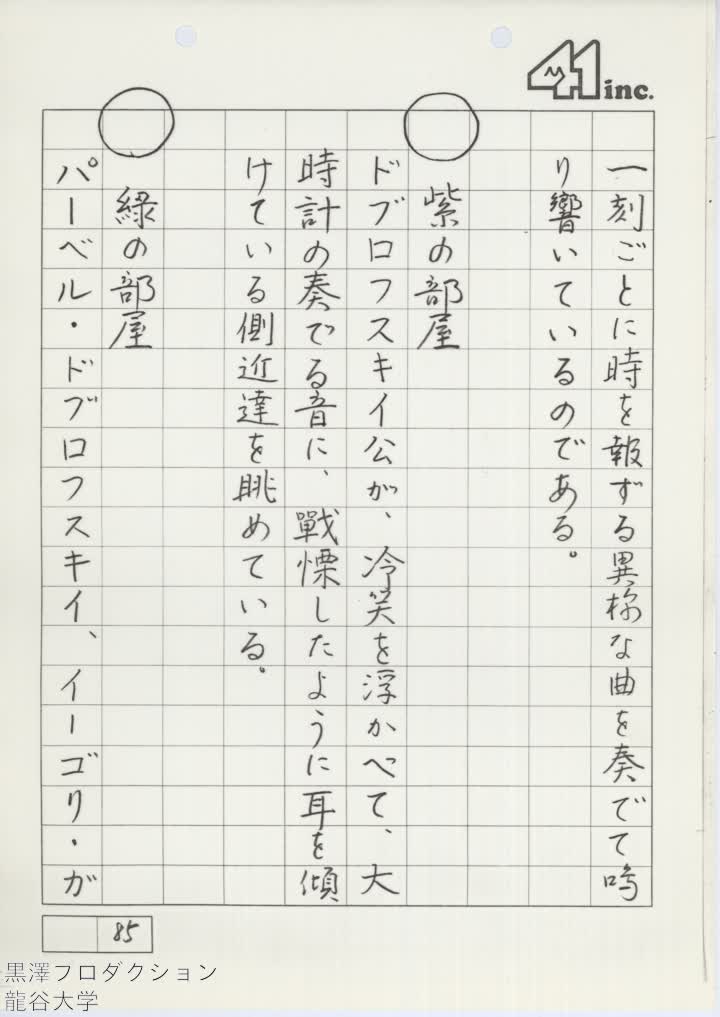 41 inc.
一刻ごとに時を報ずる異様な曲を奏でて鳴
り響いているのである。
○ 紫の部屋
ドブロフスキイ公が、冷笑を浮かべて、大
時計の奏でる音に、戰慄したように耳を傾
けている側近達を眺めている。
○ 緑の部屋
パーベル・ドブロフスキイ、イーゴリ・ガ
85
黒澤プロダクション
龍谷大学